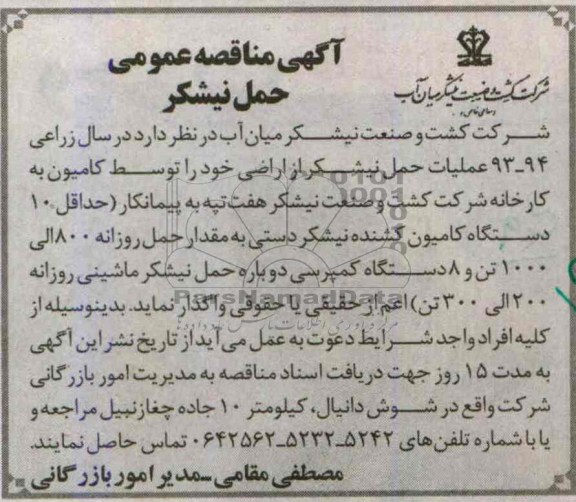 آگهی مناقصه عمومی
حمل نیشکر
شرکت کشت و صنعت نیشکر میان آب
شرکت کشت و صنعت نیشکر میان آب در نظر دارد در سال زراعی
۹۴-۹۳ عملیات حمل نیشکر از اراضی خود را توسط کامیون به
کارخانه شرکت کشت و صنعت نیشکر هفت تپه به پیمانکار (حداقل ۱۰
دستگاه کامیون کشنده نیشکر دستی به مقدار حمل روزانه ۸۰۰ الی
۱۰۰۰ تن و ۸ دستگاه کمپرسی دوباره حمل نیشکر ماشینی روزانه
۲۰۰ الی ۳۰۰ تن) اعم از حقیقی یا حقوقی واگذار نماید. بدینوسیله از
ParsNamadData
کلیه افراد واجد شرایط دعوت به عمل می آید از تاریخ نشر این آگهی
به مدت ۱۵ روز جهت دریافت اسناد مناقصه به مدیریت امور بازرگانی
شرکت واقع در شوش دانیال، کیلومتر ۱۰ جاده چغازنبیل مراجعه و
یا با شماره تلفن های ۵۲۴۲-۵۲۳۲-۰۶۴۲۵۶۲ تماس حاصل نمایند.
مصطفی مقامی-مدیر امور بازرگانی